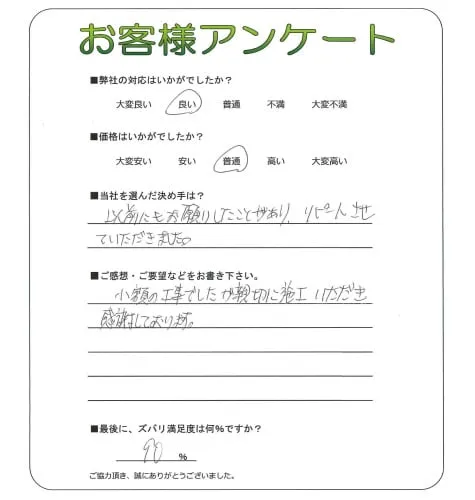 お客様アンケート
■弊社の対応はいかがでしたか？
大変良い 良い 普通 不満 大変不満
■価格はいかがでしたか？
大変安い 安い 普通 高い 大変高い
■当社を選んだ決め手は？
以前にもお願いしたことがあり、リピートさせ
ていただきました。
■ご感想・ご要望などをお書き下さい。
小額の工事でしたが親切に施工いただき
感謝しております。
■最後に、ズバリ満足度は何％ですか？
90 %
ご協力頂き、誠にありがとうございました。